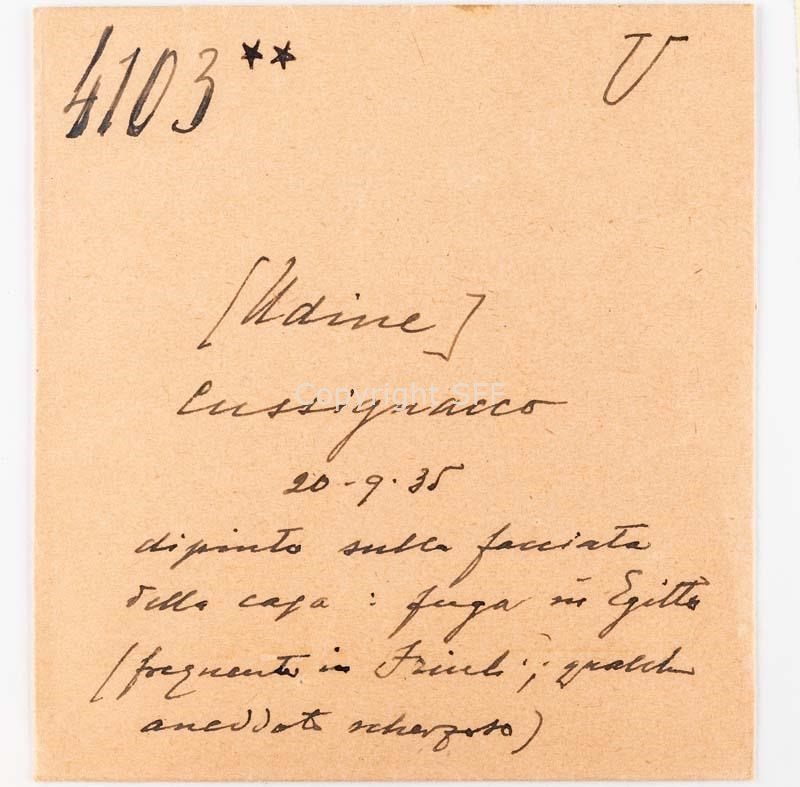 4103 ** U
[Udine]
Copyright SFF
Cussignacco
20-9.35
dipinto sulla facciata
della casa : fuga in Egitto
(frequente in Friuli ; qualche
aneddoto scherzoso)